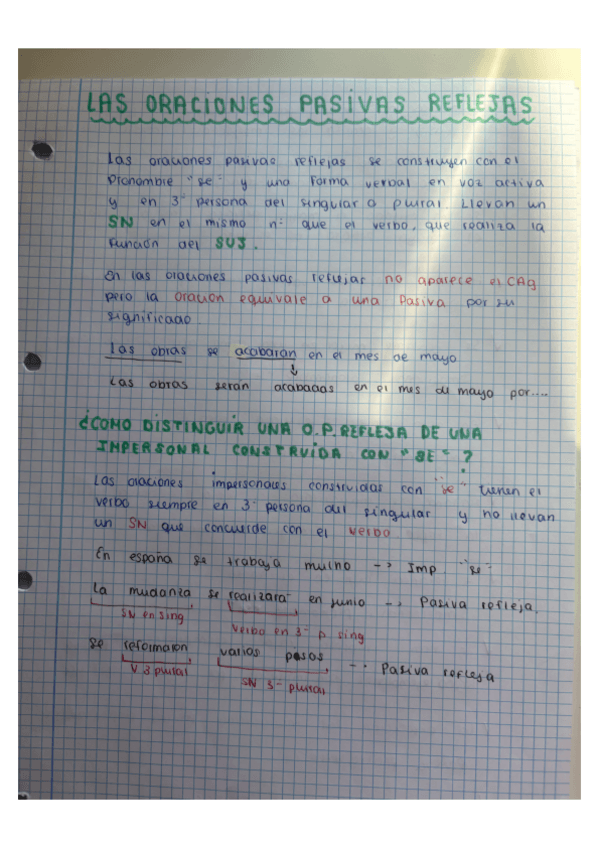 LAS ORACIONES PASIVAS REFLEJAS
Las oraciones pasivas reflejas se construyen con el
pronombre "se" y una forma verbal en voz activa
y en 3ª persona del singular o plural. Llevan un
SN en el mismo nº que el verbo, que realiza la
función del SUJ.
En las oraciones pasivas reflejas no aparece el CAg
pero la oración equivale a una Pasiva por su
significado.
Las obras se acabarán en el mes de mayo
↓
Las obras serán acabadas en el mes de mayo por....
¿COMO DISTINGUIR UNA O.P.REFLEJA DE UNA
IMPERSONAL CONSTRUIDA CON "SE" ?
Las oraciones impersonales construidas con "se" tienen el
verbo siempre en 3ª persona del singular y no llevan
un SN que concuerde con el verbo
En españa se trabaja mucho --> Imp "se"
La mudanza se realizará en junio --> Pasiva refleja.
SN en sing
verbo en 3ª p sing
se reformaron varios pisos --> Pasiva refleja
V 3 plural
SN 3ª plural